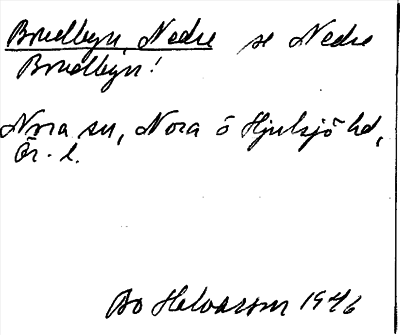 Bondbyn, Nedre se Nedre
Bondbyn!
Nora sn, Nora o Hjulsjö hd,
Ör. l.
Bo Helvarsson 1946